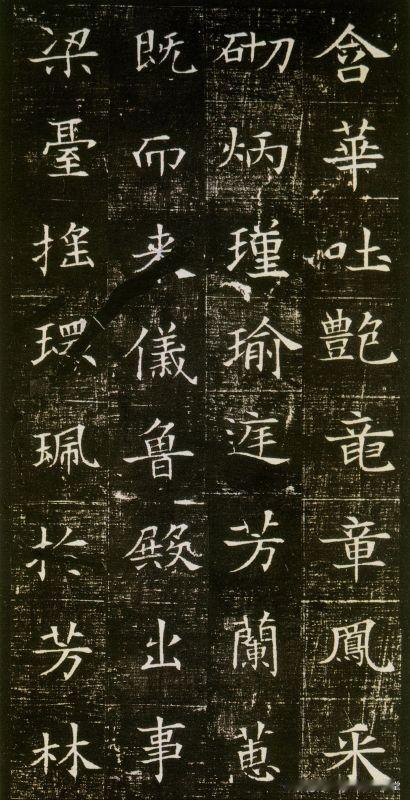 含華吐艷竜章鳳采
砌炳瑾瑜庭芳蘭蕙
既而来儀魯殿出事
梁臺揺環珮於芳林